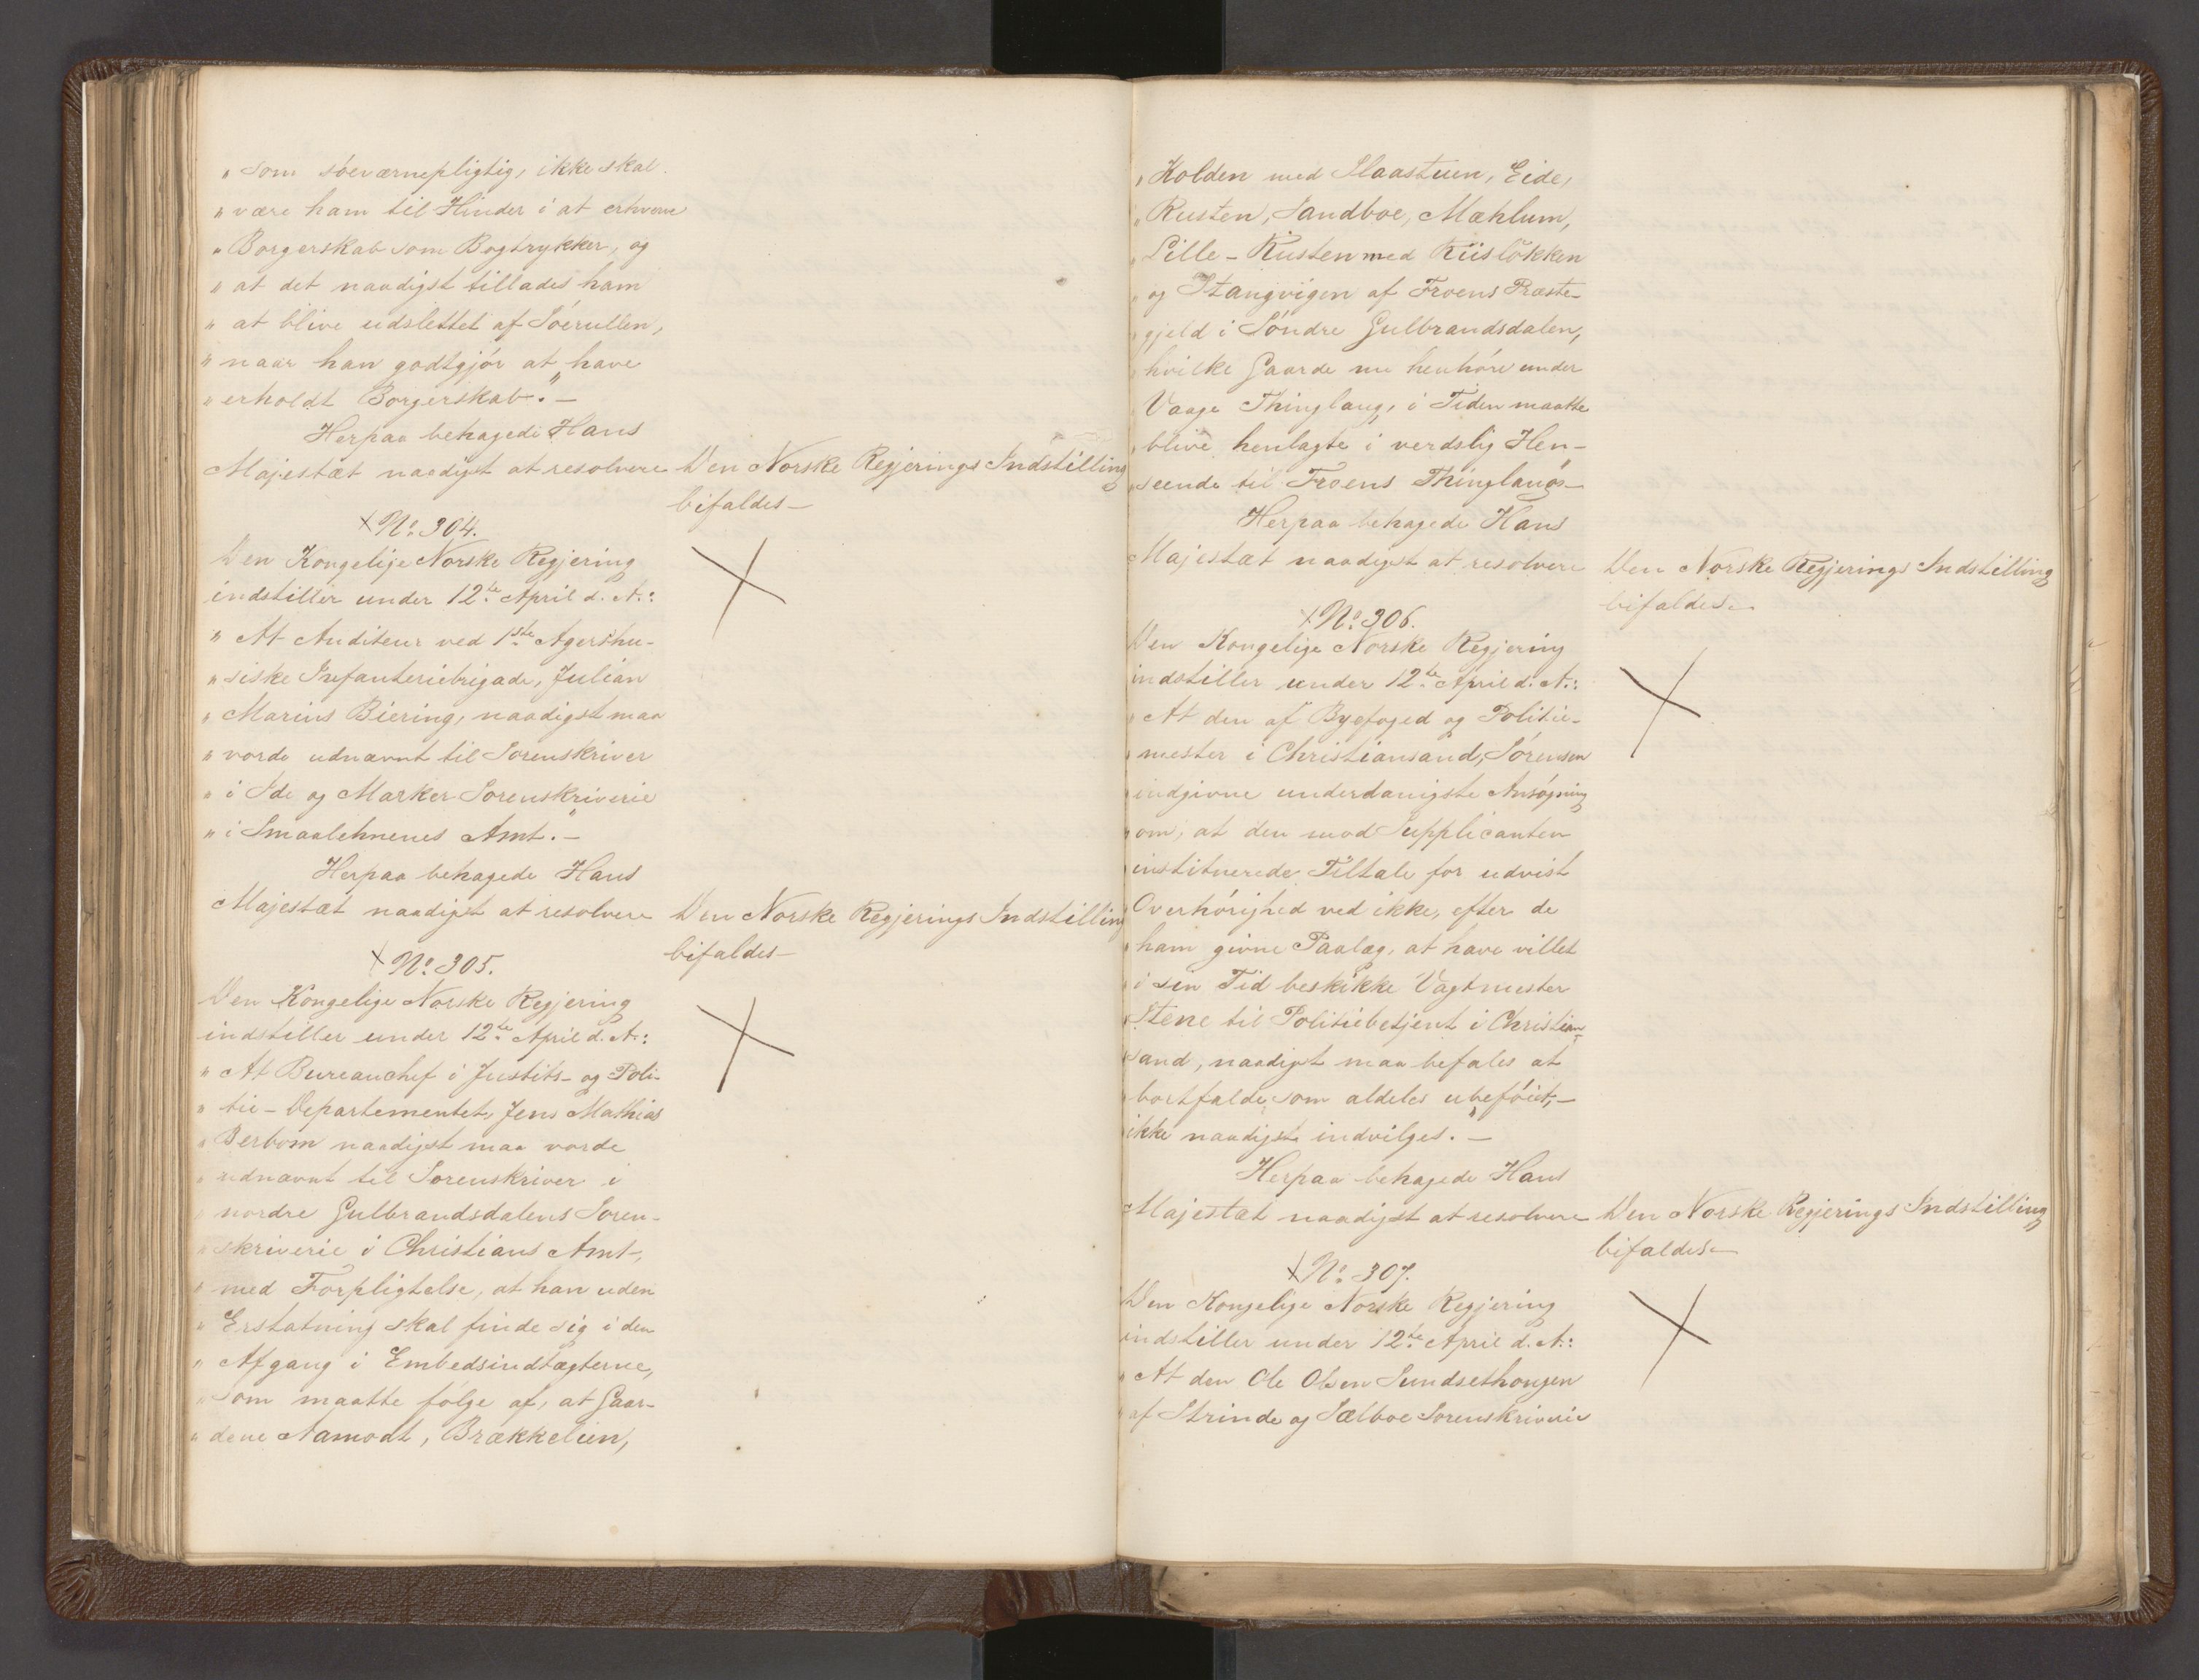 „som söeværnepligtig, ikke skal
„være ham til Hinder i at erhverve
„Borgerskab som Bogtrykker, og
„at det naadigst tillades ham
„at blive udslettet af Söerullen,
„naar han godtgjör at have
„erholdt Borgerskab.“—
Herpaa behagede Hans
Majestæt naadigst at resolvere
Den Norske Regjerings Indstilling
bifaldes—
No. 304.
Den Kongelige Norske Regjering
indstiller under 12te April d. A.:
„At Auditeur ved 1ste Agershu-
„siske Infanteriebrigade, Julian
„Marius Biering, naadigst maa
„vorde udnævnt til Sorenskriver
„i Ide og Marker Sorenskriverie
„i Smaalehnenes Amt.“—
Herpaa behagede Hans
Majestæt naadigst at resolvere
Den Norske Regjerings Indstilling
bifaldes—
No. 305.
Den Kongelige Norske Regjering
indstiller under 12te April d. A.:
„At Bureauchef i Justits- og Poli-
„tie-Departementet, Jens Mathias
„Berbom naadigst maa vorde
„udnævnt til Sorenskriver i
„nordre Gulbrandsdalens Soren-
„skriverie i Christians Amt,
„med Forpligtelse, at han uden
„Erstatning skal finde sig i den
„Afgang i Embedsindtægterne,
„som maatte fölge af, at Gaar-
„dene Aamodt, Brækkelien,
„Kolden med Slaastuen, Eide,
„Rusten, Sandboe, Mæhlum,
„Lille-Rusten med Riislökken
„og Stangvigen af Froens Præste-
„gjeld i Söndre Gulbrandsdalen,
„hvilke Gaarde nu henhöre under
„Vaage Thinglaug, i Tiden maatte
„blive henlagte i verdslig Hen-
„seende til Froens Thinglaug“—
Herpaa behagede Hans
Majestæt naadigst at resolvere
Den Norske Regjerings Indstilling
bifaldes—
No. 306.
Den Kongelige Norske Regjering
indstiller under 12te April d. A.:
„At den af Byefoged og Politie-
„mester i Christiansand, Sörensen
„indgivne underdanigste Ansögning
„om, at den mod Supplicanten
„instituerede Tiltale for udvist
„Overhörighed ved ikke, efter de
„ham givne Paalæg, at have villet
„i sin Tid beskikke Vagtmester
„Stene til Politiebetjent i Christian-
„sand, naadigst maa befales at
„bortfalde som aldeles ubeföiet,—
„ikke naadigst indvilges.“—
Herpaa behagede Hans
Majestæt naadigst at resolvere
Den Norske Regjerings Indstilling
bifaldes—
No. 307.
Den Kongelige Norske Regjering
indstiller under 12te April d. A.:
„At den Ole Olsen Sundsethougen
„af Strinde og Sælboe Sorenskriverie